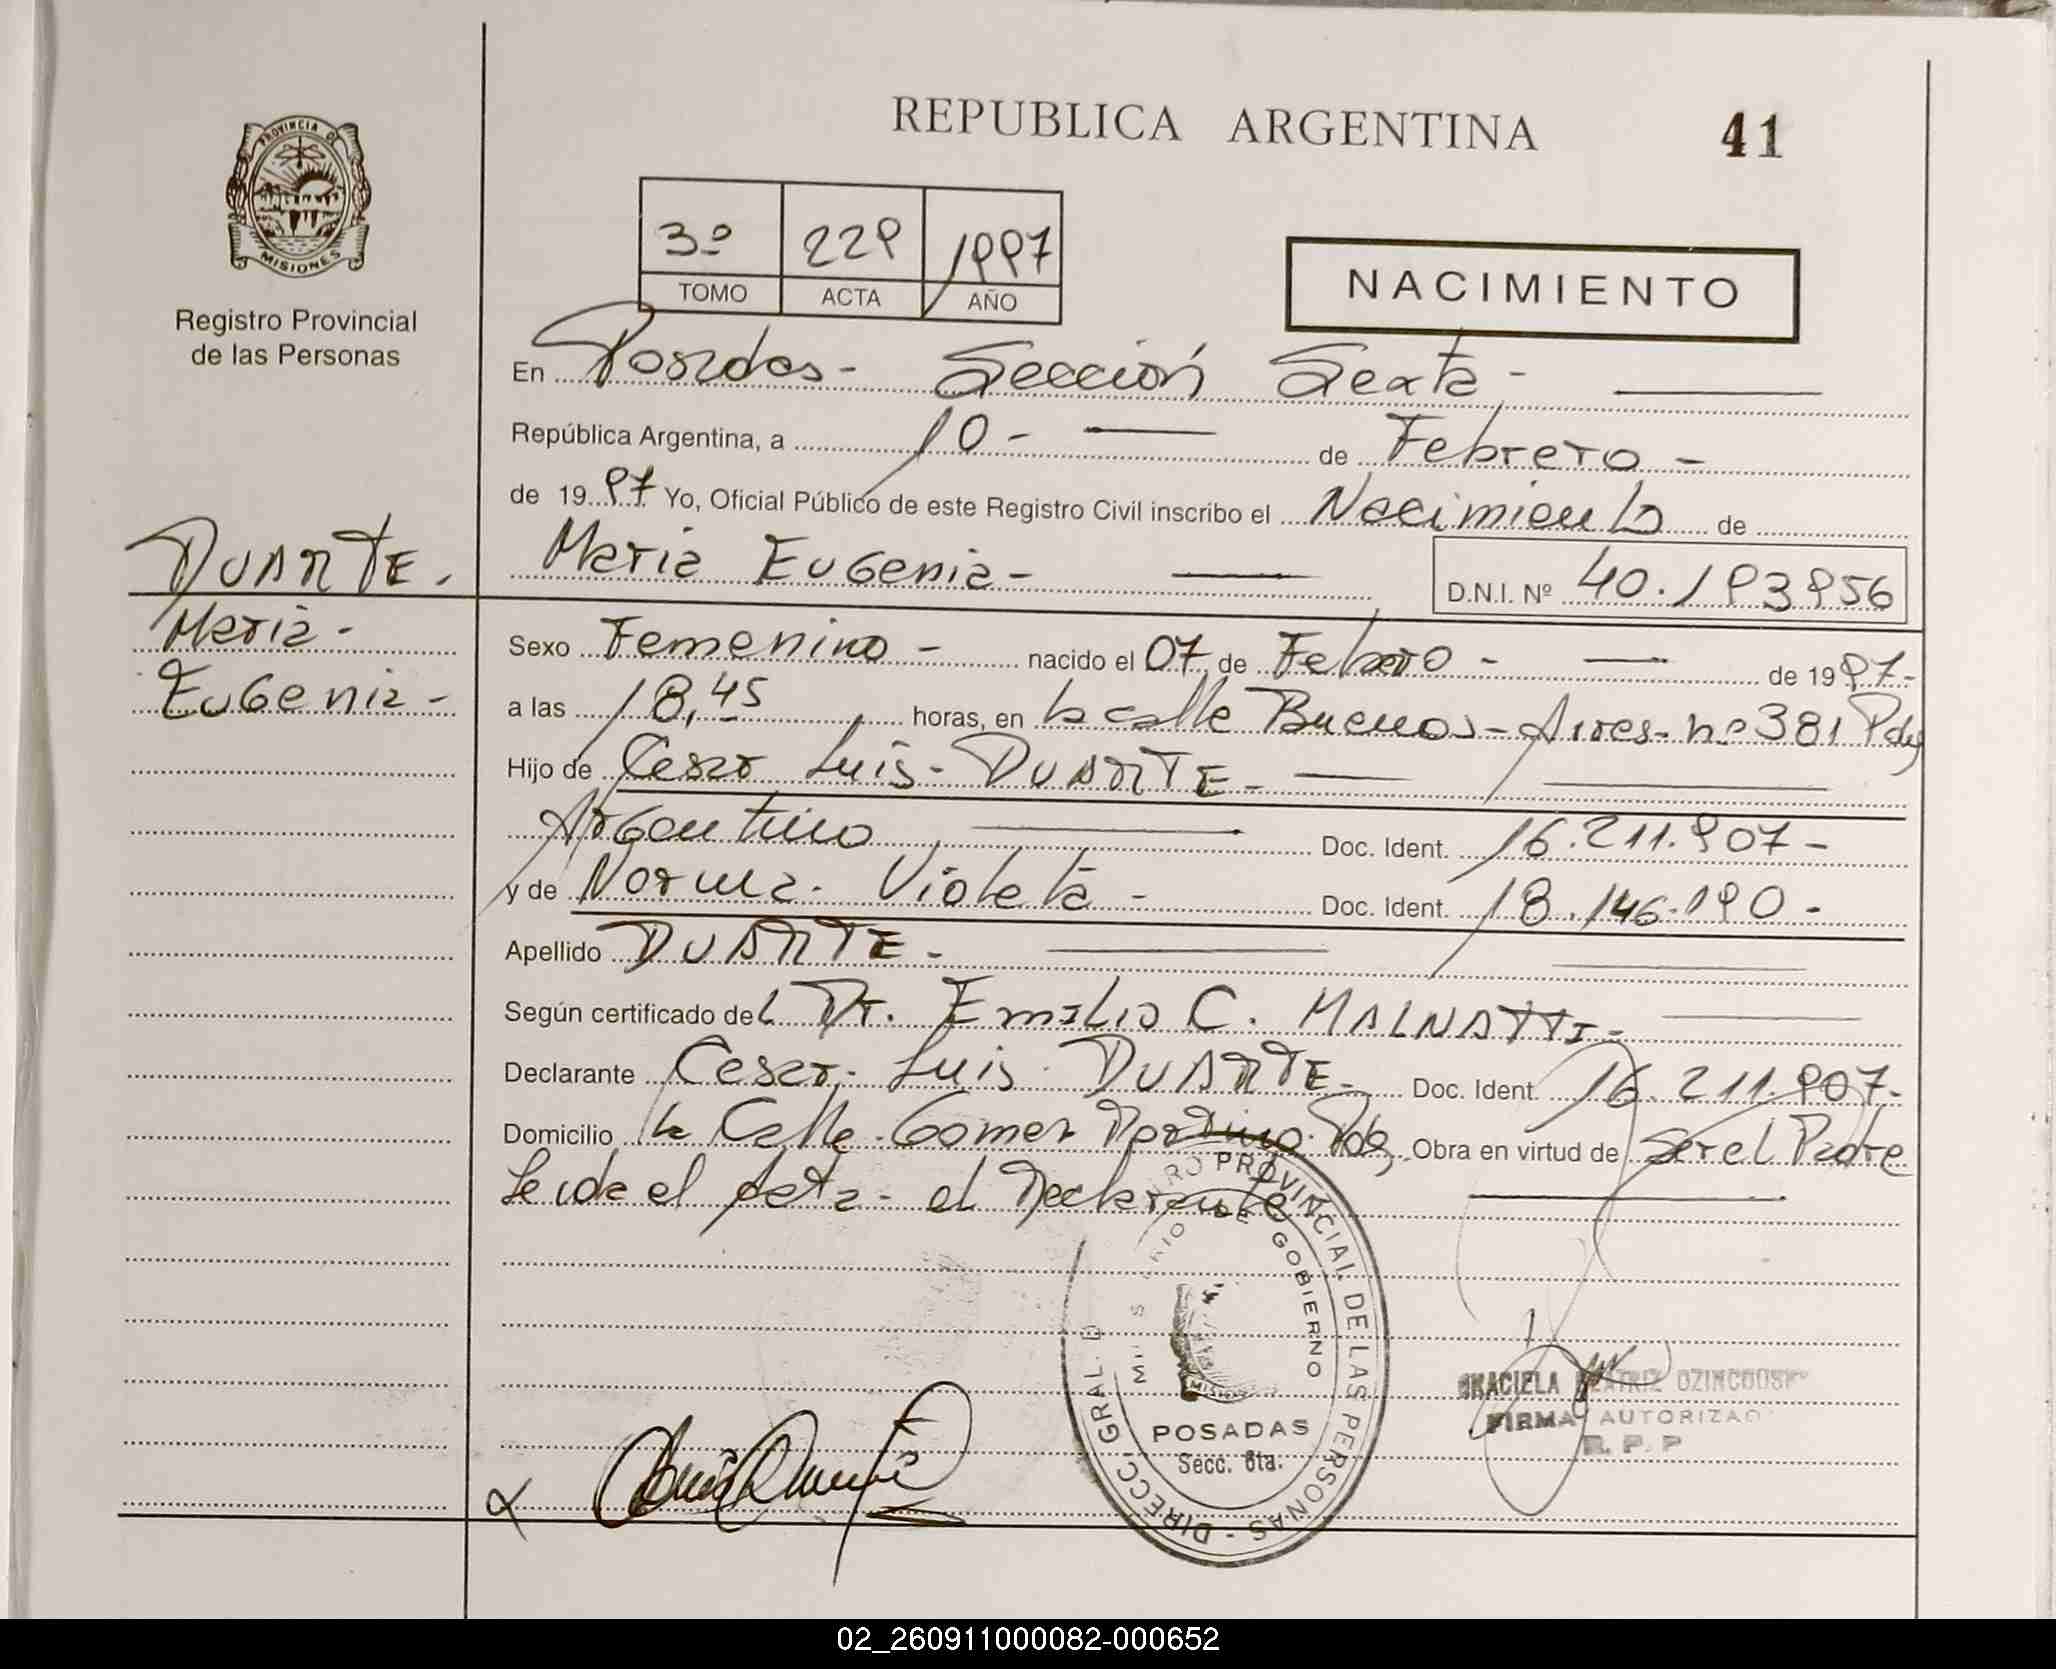 REPUBLICA ARGENTINA
41
PROVINCIA DE
MISIONES
Registro Provincial
de las Personas
3º 229 1997
TOMO ACTA AÑO
NACIMIENTO
En Posadas - Sección Sexta -
República Argentina, a 10 - de Febrero -
de 1997 Yo, Oficial Público de este Registro Civil inscribo el Nacimiento de
Maria Eugenia - D.N.I. Nº 40.193956
DUARTE.
Maria -
Eugenia -
Sexo Femenino - nacido el 07 de Febrero - de 1997-
a las 18,45 horas, en la calle Buenos - Aires - nº 381 Pdas
Hijo de Cesar Luis - DUARTE -
Argentino Doc. Ident. 16.211.907 -
y de Norma - Violeta - Doc. Ident. 18.146.190 -
Apellido DUARTE -
Según certificado del Dr. Emilio C. MALNATTI -
Declarante Cesar - Luis - DUARTE - Doc. Ident. 16.211.907 -
Domicilio la Calle - Gomez Portino - Pdas, Obra en virtud de ser el Padre
Leida el Acta - el Declarante
DIRECC. GRAL. D PROVINCIAL DE LAS PERSONAS -
DE GOBIERNO
MISIONES
POSADAS
Secc. 6ta.
GRACIELA BEATRIZ
FIRMA AUTORIZAD
R. P. P
02_260911000082-000652